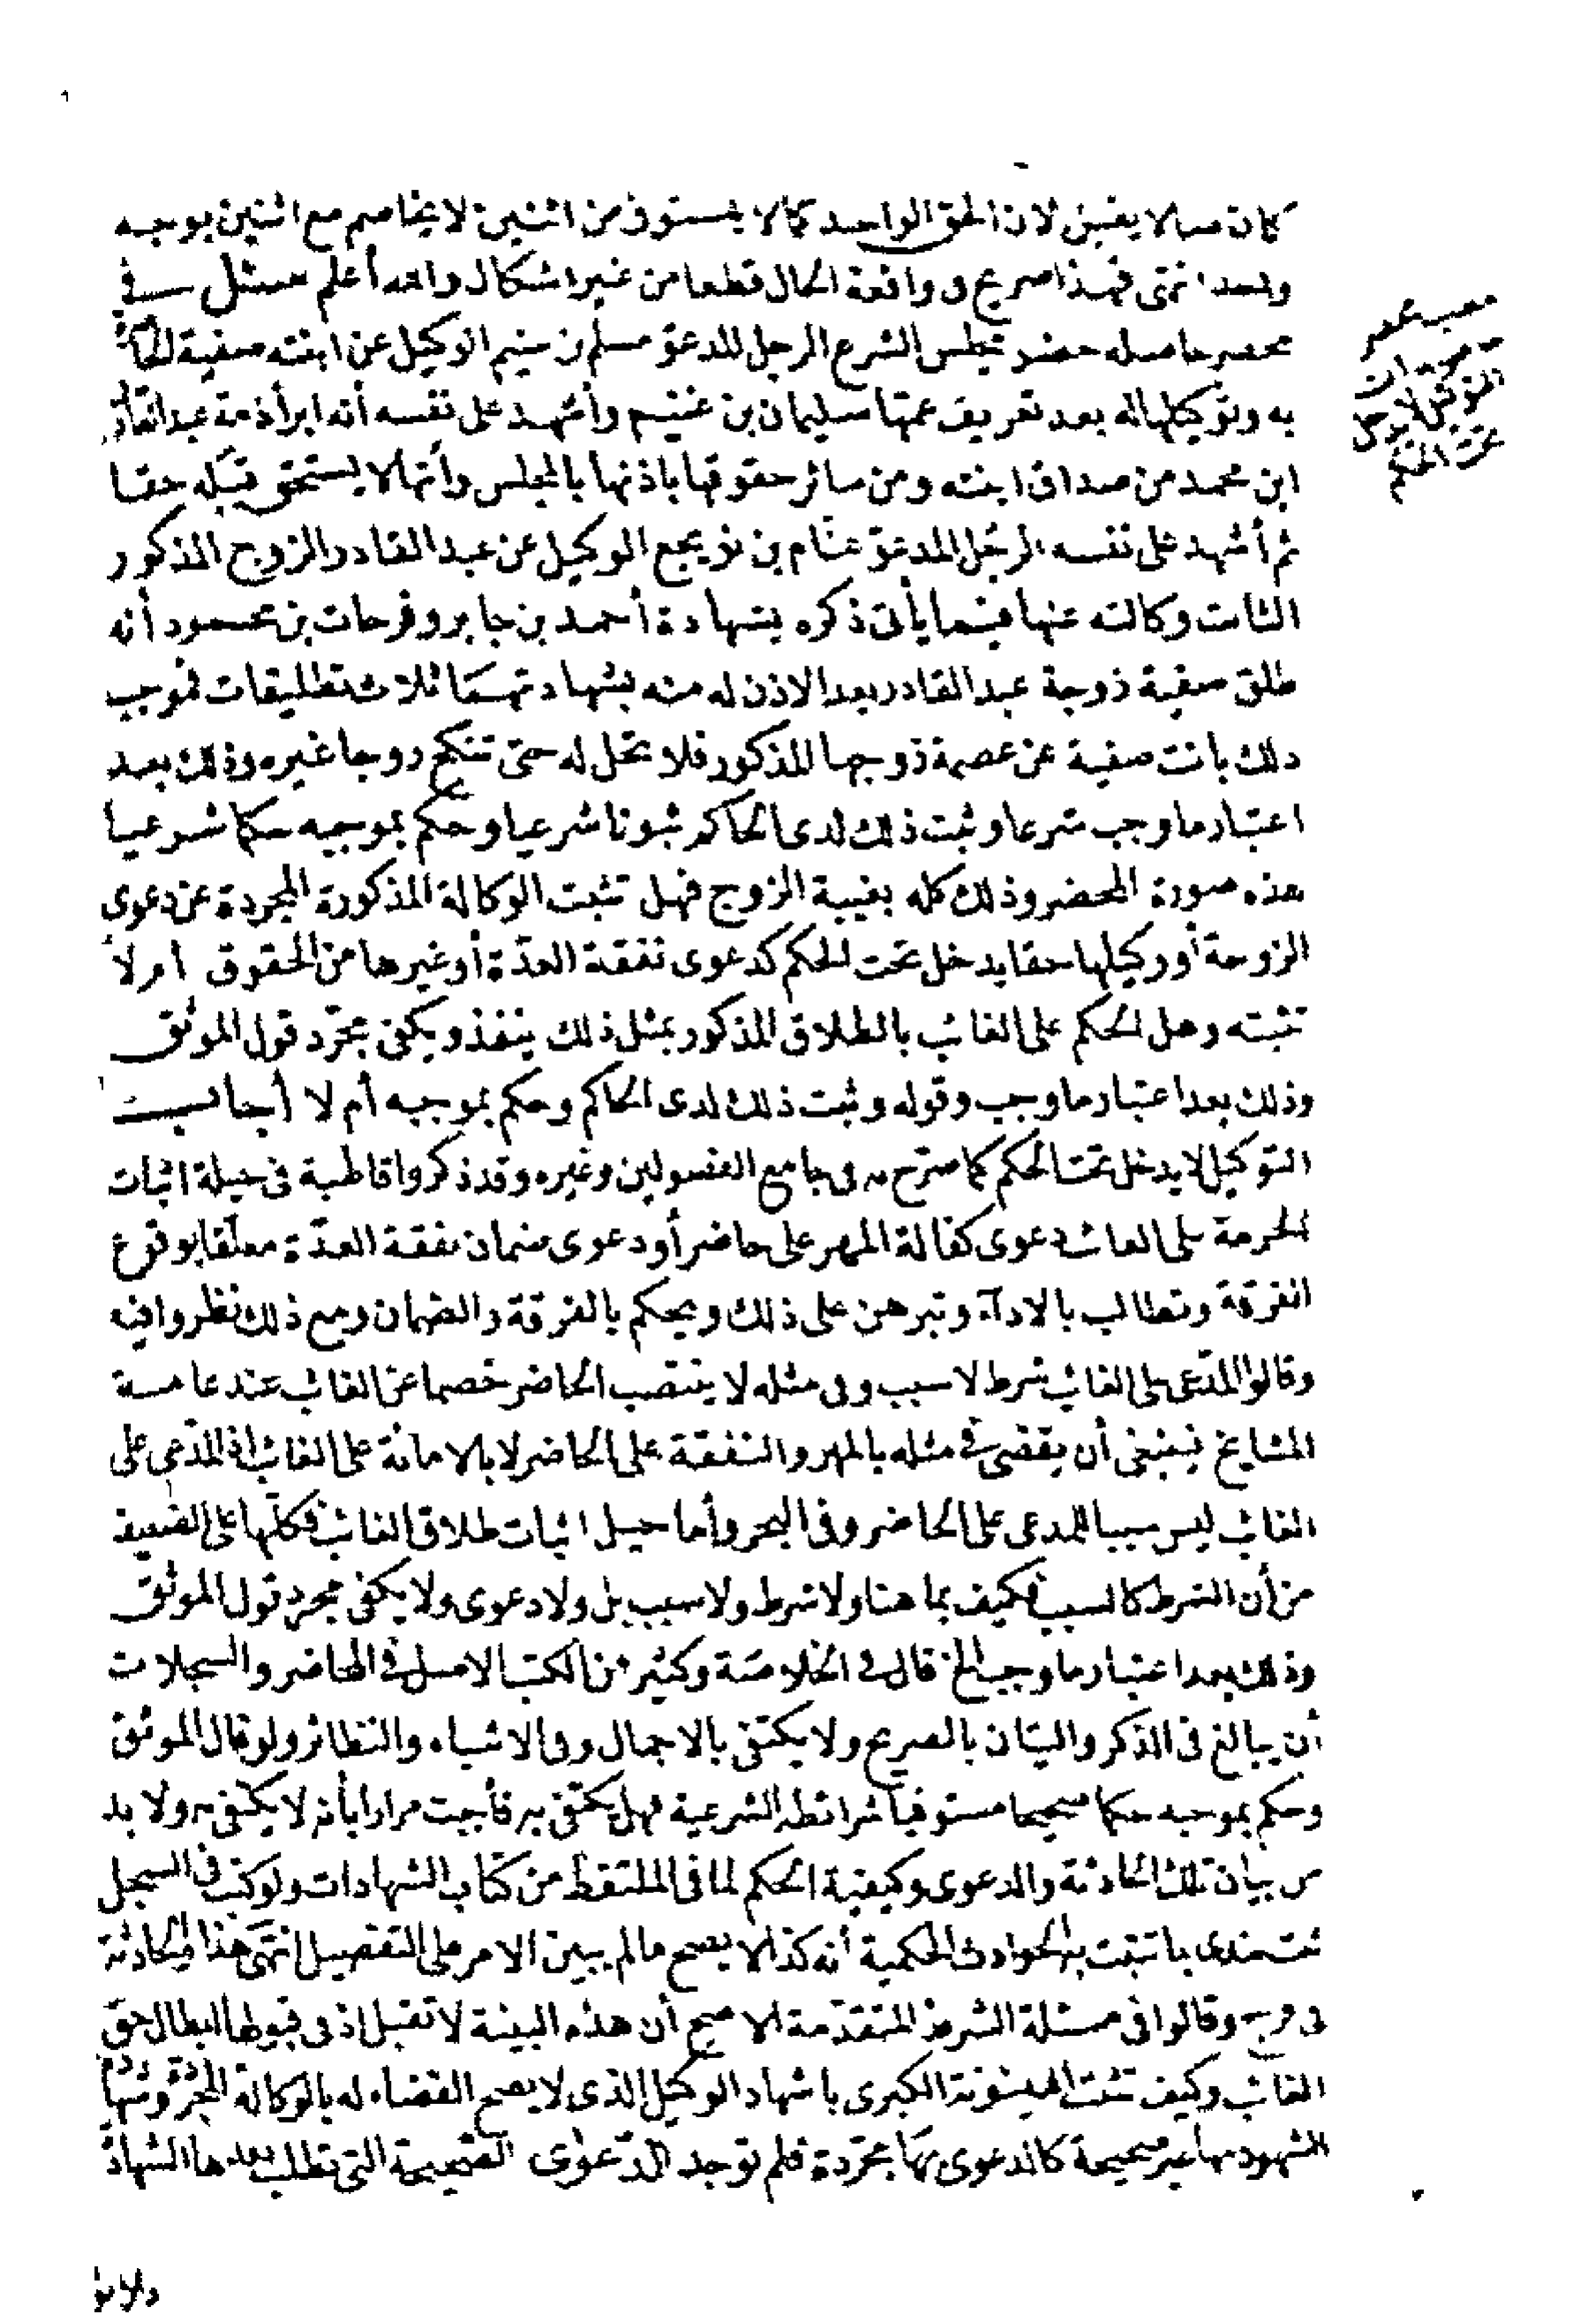 كان مما لا يقبض لان الحق الواحد كما لا يستوفى من اثنين لا يخاصم مع اثنين بوجه
واحد انتهى فهذا صريح فى واقعة الحال قطعا من غير اشكال والله أعلم سئل فى
محضر حاصله حضر بمجلس الشرع الرجل المدعوّ مسلم بن غنيم الوكيل عن ابنته صفية
به وتوكيلها له بعد تعريف عمها سليمان بن غنيم وأشهد على نفسه أنه ابرأ ذمة عبد القادر
ابن محمد من صداق ابنته ومن سائر حقوقها باذنها بالمجلس وأنها لا يستحق قبله حقا
ثم أشهد على نفسه الرجل المدعوّ غنام بن الوكيل عن عبد القادر الزوج المذكور
الثابت وكالته عنها فيما يأتى ذكره بشهادة أحمد بن جابر وفرحات بن أنه
طلق صفية زوجة عبد القادر بعد الاذن له منه بشهادتهما ثلاث تطليقات فموجب
ذلك بانت صفية عن عصمة زوجها المذكور فلا تحل له حتى تنكح زوجا غيره وذلك بعد
اعتبار ما وجب شرعا وثبت ذلك لدى الحاكم ثبوتا شرعيا وحكم بموجبه حكما شرعيا
هذه صورة المحضر وذلك كله بغيبة الزوج فهل تثبت الوكالة المذكورة المجردة عن دعوى
الزوجة أو وكيلها حقا يدخل تحت الحكم كدعوى نفقة العدّة أو غيرها من الحقوق أم لا
تثبته وهل الحكم على الغائب بالطلاق المذكور بمثل ذلك ينفذ ويكفى مجرّد قول الموثق
وذلك بعد اعتبار ما وجب وقوله وثبت ذلك لدى الحاكم وحكم بموجبه أم لا أجاب
التوكيل لا يدخل تحت الحكم كما صرّح به فى جامع الفصولين وغيره وقد ذكروا قاطبة فى حيلة اثبات
الحرمة على الغائب دعوى كفالة المهر على حاضر أو دعوى ضمان نفقة العدّة معلقا بوقوع
الفرقة وتطالب بالاداء وتبرهن على ذلك ويحكم بالفرقة والضمان ومع ذلك نظروا فيه
وقالوا المدّعى على الغائب شرط لا سبب وفى مثله لا ينتصب الحاضر خصما عن الغائب عند عامة
المشايخ فينبغى أن يقضى فى مثله بالمهر والنفقة على الحاضر لا بالابانة على الغائب اذ المدّعى على
الغائب ليس سببا للمدعى على الحاضر وفى البحر وأما حيل اثبات طلاق الغائب فكلها على الضعيف
من أن الشرط كالسبب فكيف بما هنا ولا شرط ولا سبب بل ولا دعوى ولا يكفى مجرد قول الموثق
وذلك بعد اعتبار ما وجب الخ قال فى الخلاصة وكثير من الكتب الاصل فى المحاضر والسجلات
أن يبالغ فى الذكر والبيان بالصريح ولا يكتفى بالاجمال وفى الاشباه والنظائر ولو قال الموثق
وحكم بموجبه حكما صحيحا مستوفيا شرائطه الشرعية فهل يكتفى به فأجبت مرارا بأنه لا يكتفى به ولا بد
من بيان تلك الحادثة والدعوى وكيفية الحكم لما فى الملتقط من كتاب الشهادات ولو كتب فى السجل
ثبت عندى بما تثبت به الحوادث الحكمية أنه كذا لا يصح ما لم يبين الامر على التفصيل انتهى هذا والحادثة
وقالوا فى مسئلة الشرط المتقدّمة الاصح أن هذه البينة لا تقبل اذ فى قبولها ابطال حق
الغائب وكيف تثبت البينونة الكبرى باشهاد الوكيل الذى لا يصح القضاء له بالوكالة المجرّدة
الشهود بها غير صحيحة كالدعوى بها مجرّدة فلم توجد الدّعوى الصحيحة التى تطلب بعدها الشهادة